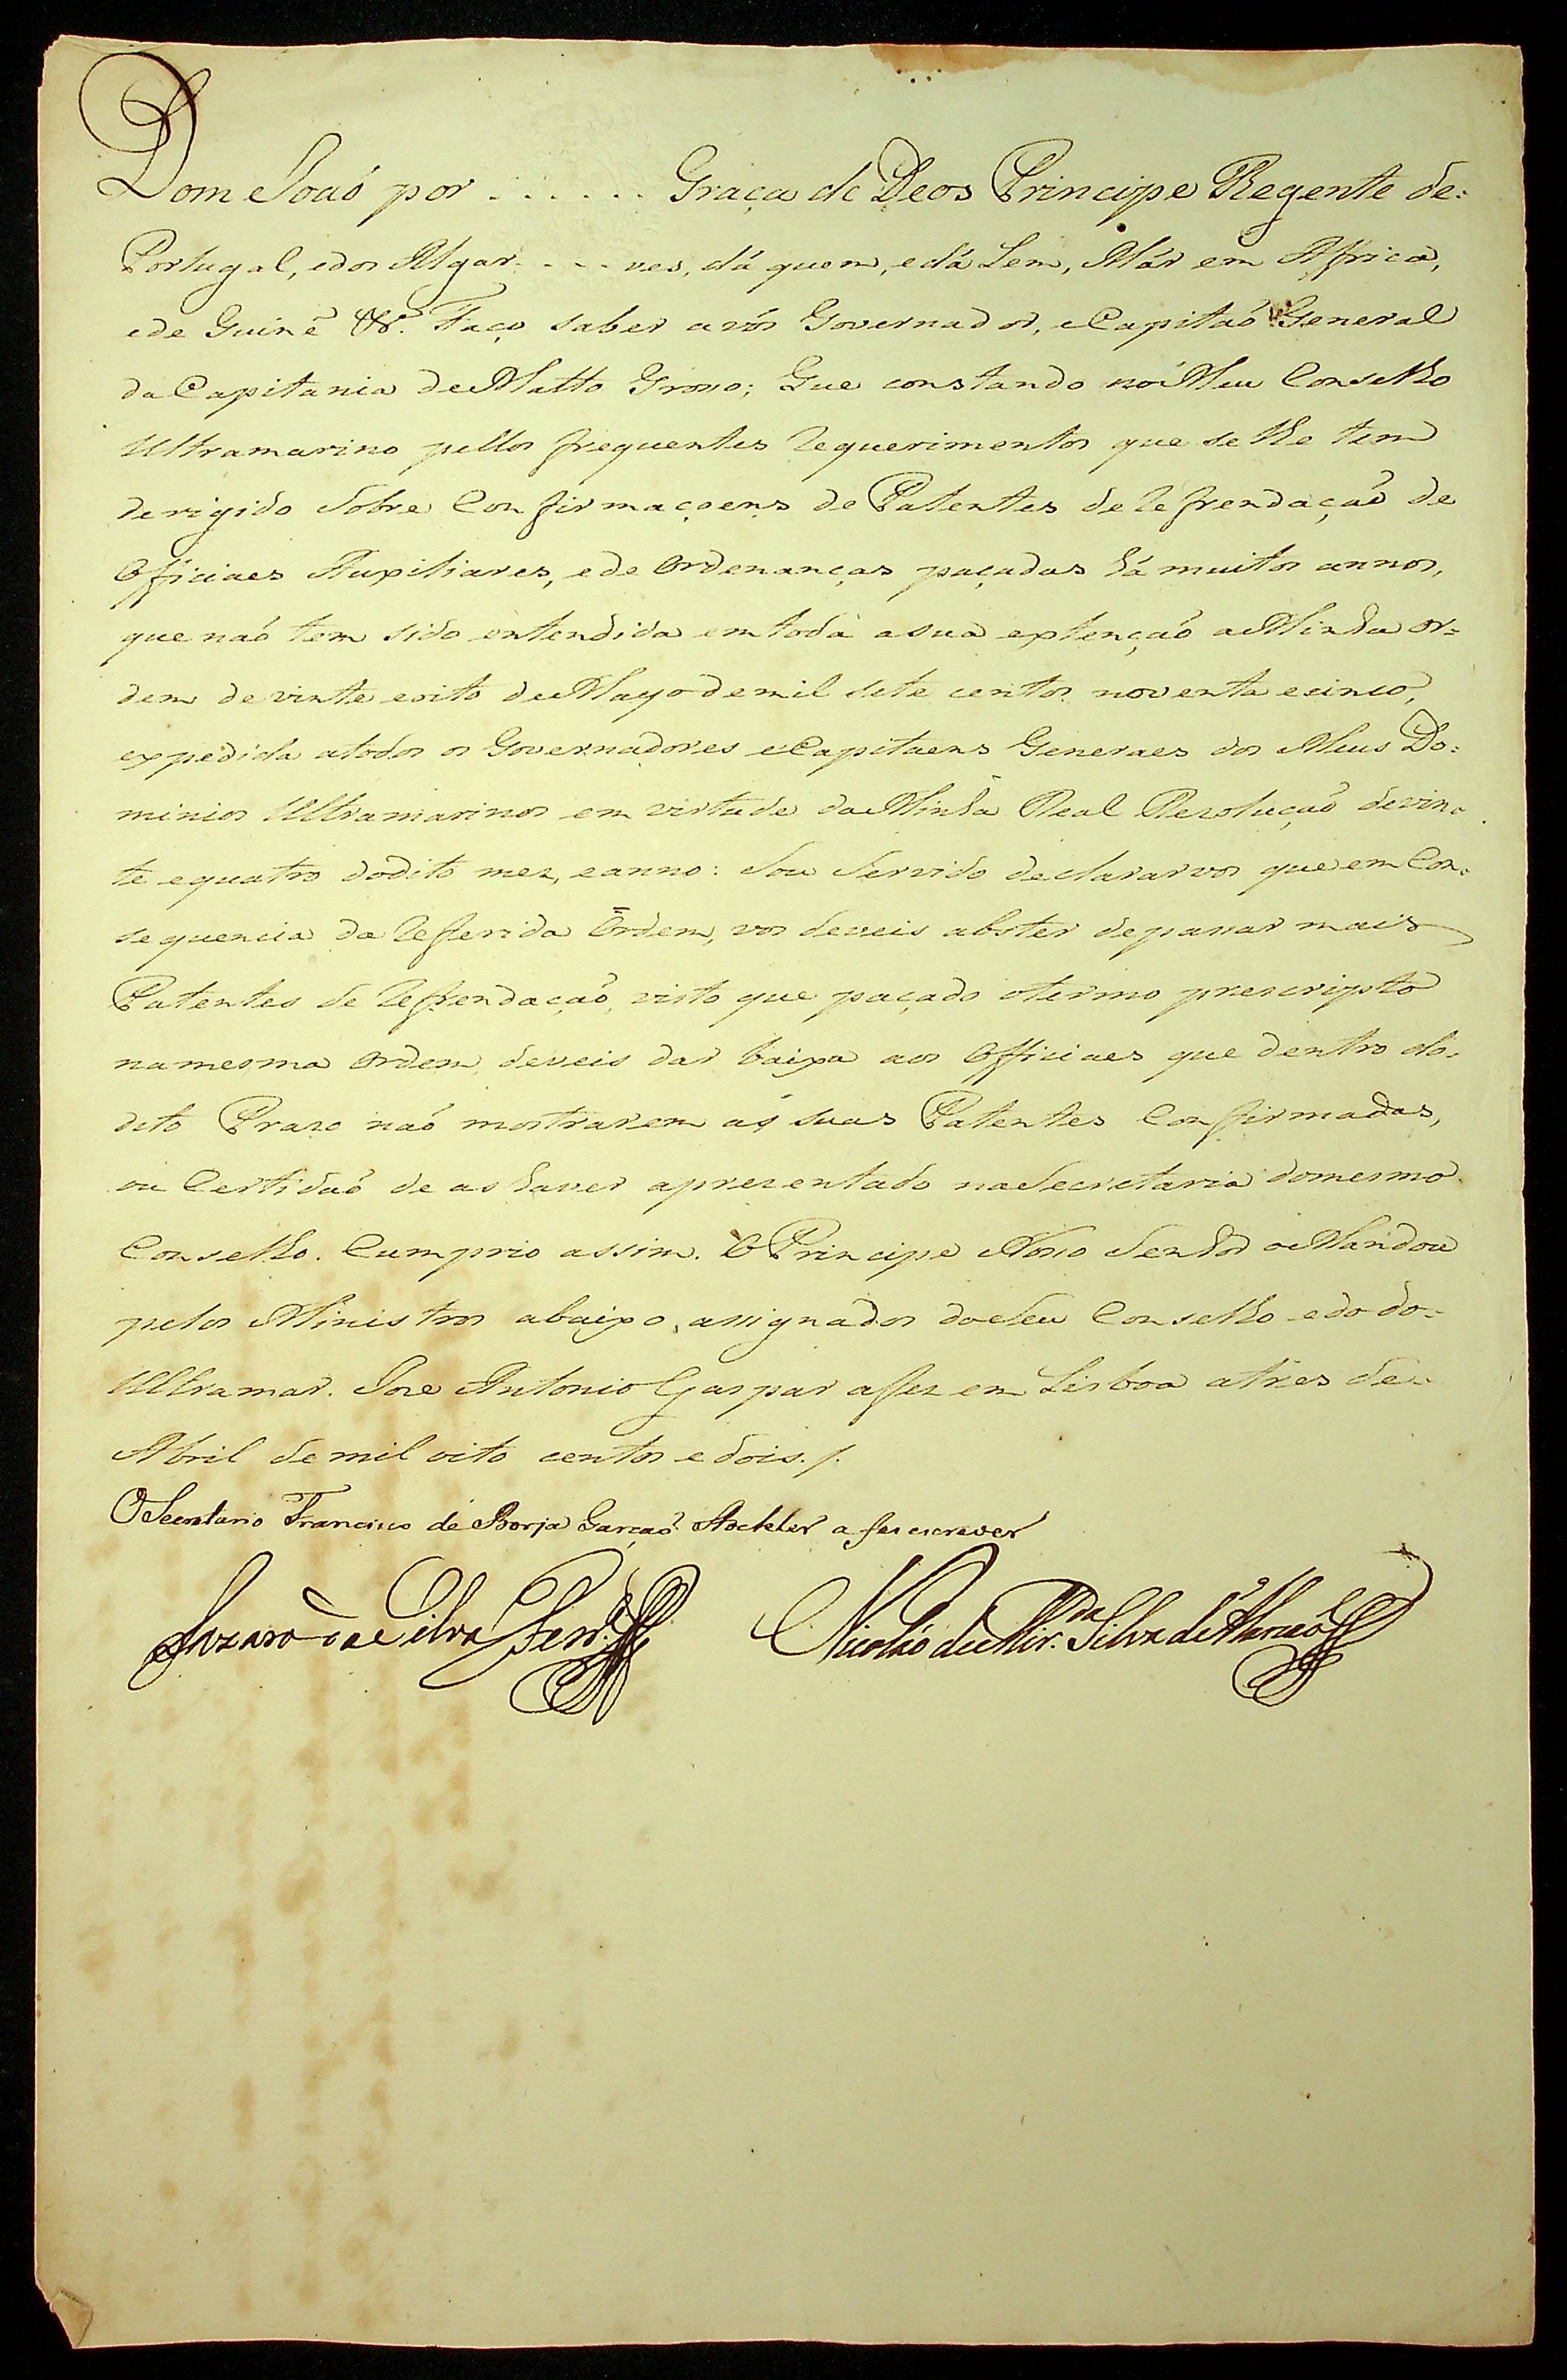 Dom Joaõ por . . . . . . Graça de Deos Principe Regente de=
Portugal, edos Algar- - - -ves, dá quem, edá Lem, Már em Affrica,
ede Guiné &ª. Faço saber avós Governador, eCapitaõ General
daCapitania deMatto Grosso; Que constando noMeu Conselho
Ultramarino pellos frequentes Requerimentos que selhe tem
derigido Sobre Confirmaçoens de Patentes deRefrendaçaõ de
Officiaes Auxiliares, ede Ordenanças paçadas há muitos annos,
que naõ tem sido entendida emtoda asua extençaõ aMinha Or=
dem devinte eoito deMayo demil sete centos noventa ecinco,
expedida atodos os Governadores eCapitaens Generaes dos Meus Do=
minios Ultramarinos em virtude daMinha Real Rezoluçaõ devin=
te equatro dodito mez, eanno: Sou Servido declararvos que em Con=
sequencia da Refferida Ordem, vos deveis abster depassar mais
Patentes de Refrendaçaõ, visto que paçado otermo prescripto
namesma Ordem, deveis dar baixa aos Officiaes que dentro do=
dito Prazo naõ mostrarem as suas Patentes Confirmadas,
ou Certidaõ de as haver aprezentado naSecretaria domesmo
Conselho. Cumprio assim. OPrincipe Nosso Senhor oMandou
pelos Ministros abaixo assignados doSeu Conselho edo do=
Ultramar. Joze Antonio Gaspar afez em Lisboa atres de=
Abril de mil oito centos edois./.
OSecretario Francisco de Borja Garçaõ Stockler a fez escrever
Lazaro da Silva Ferrª
Nicoláo de Mirda Silva de Alarcaõ